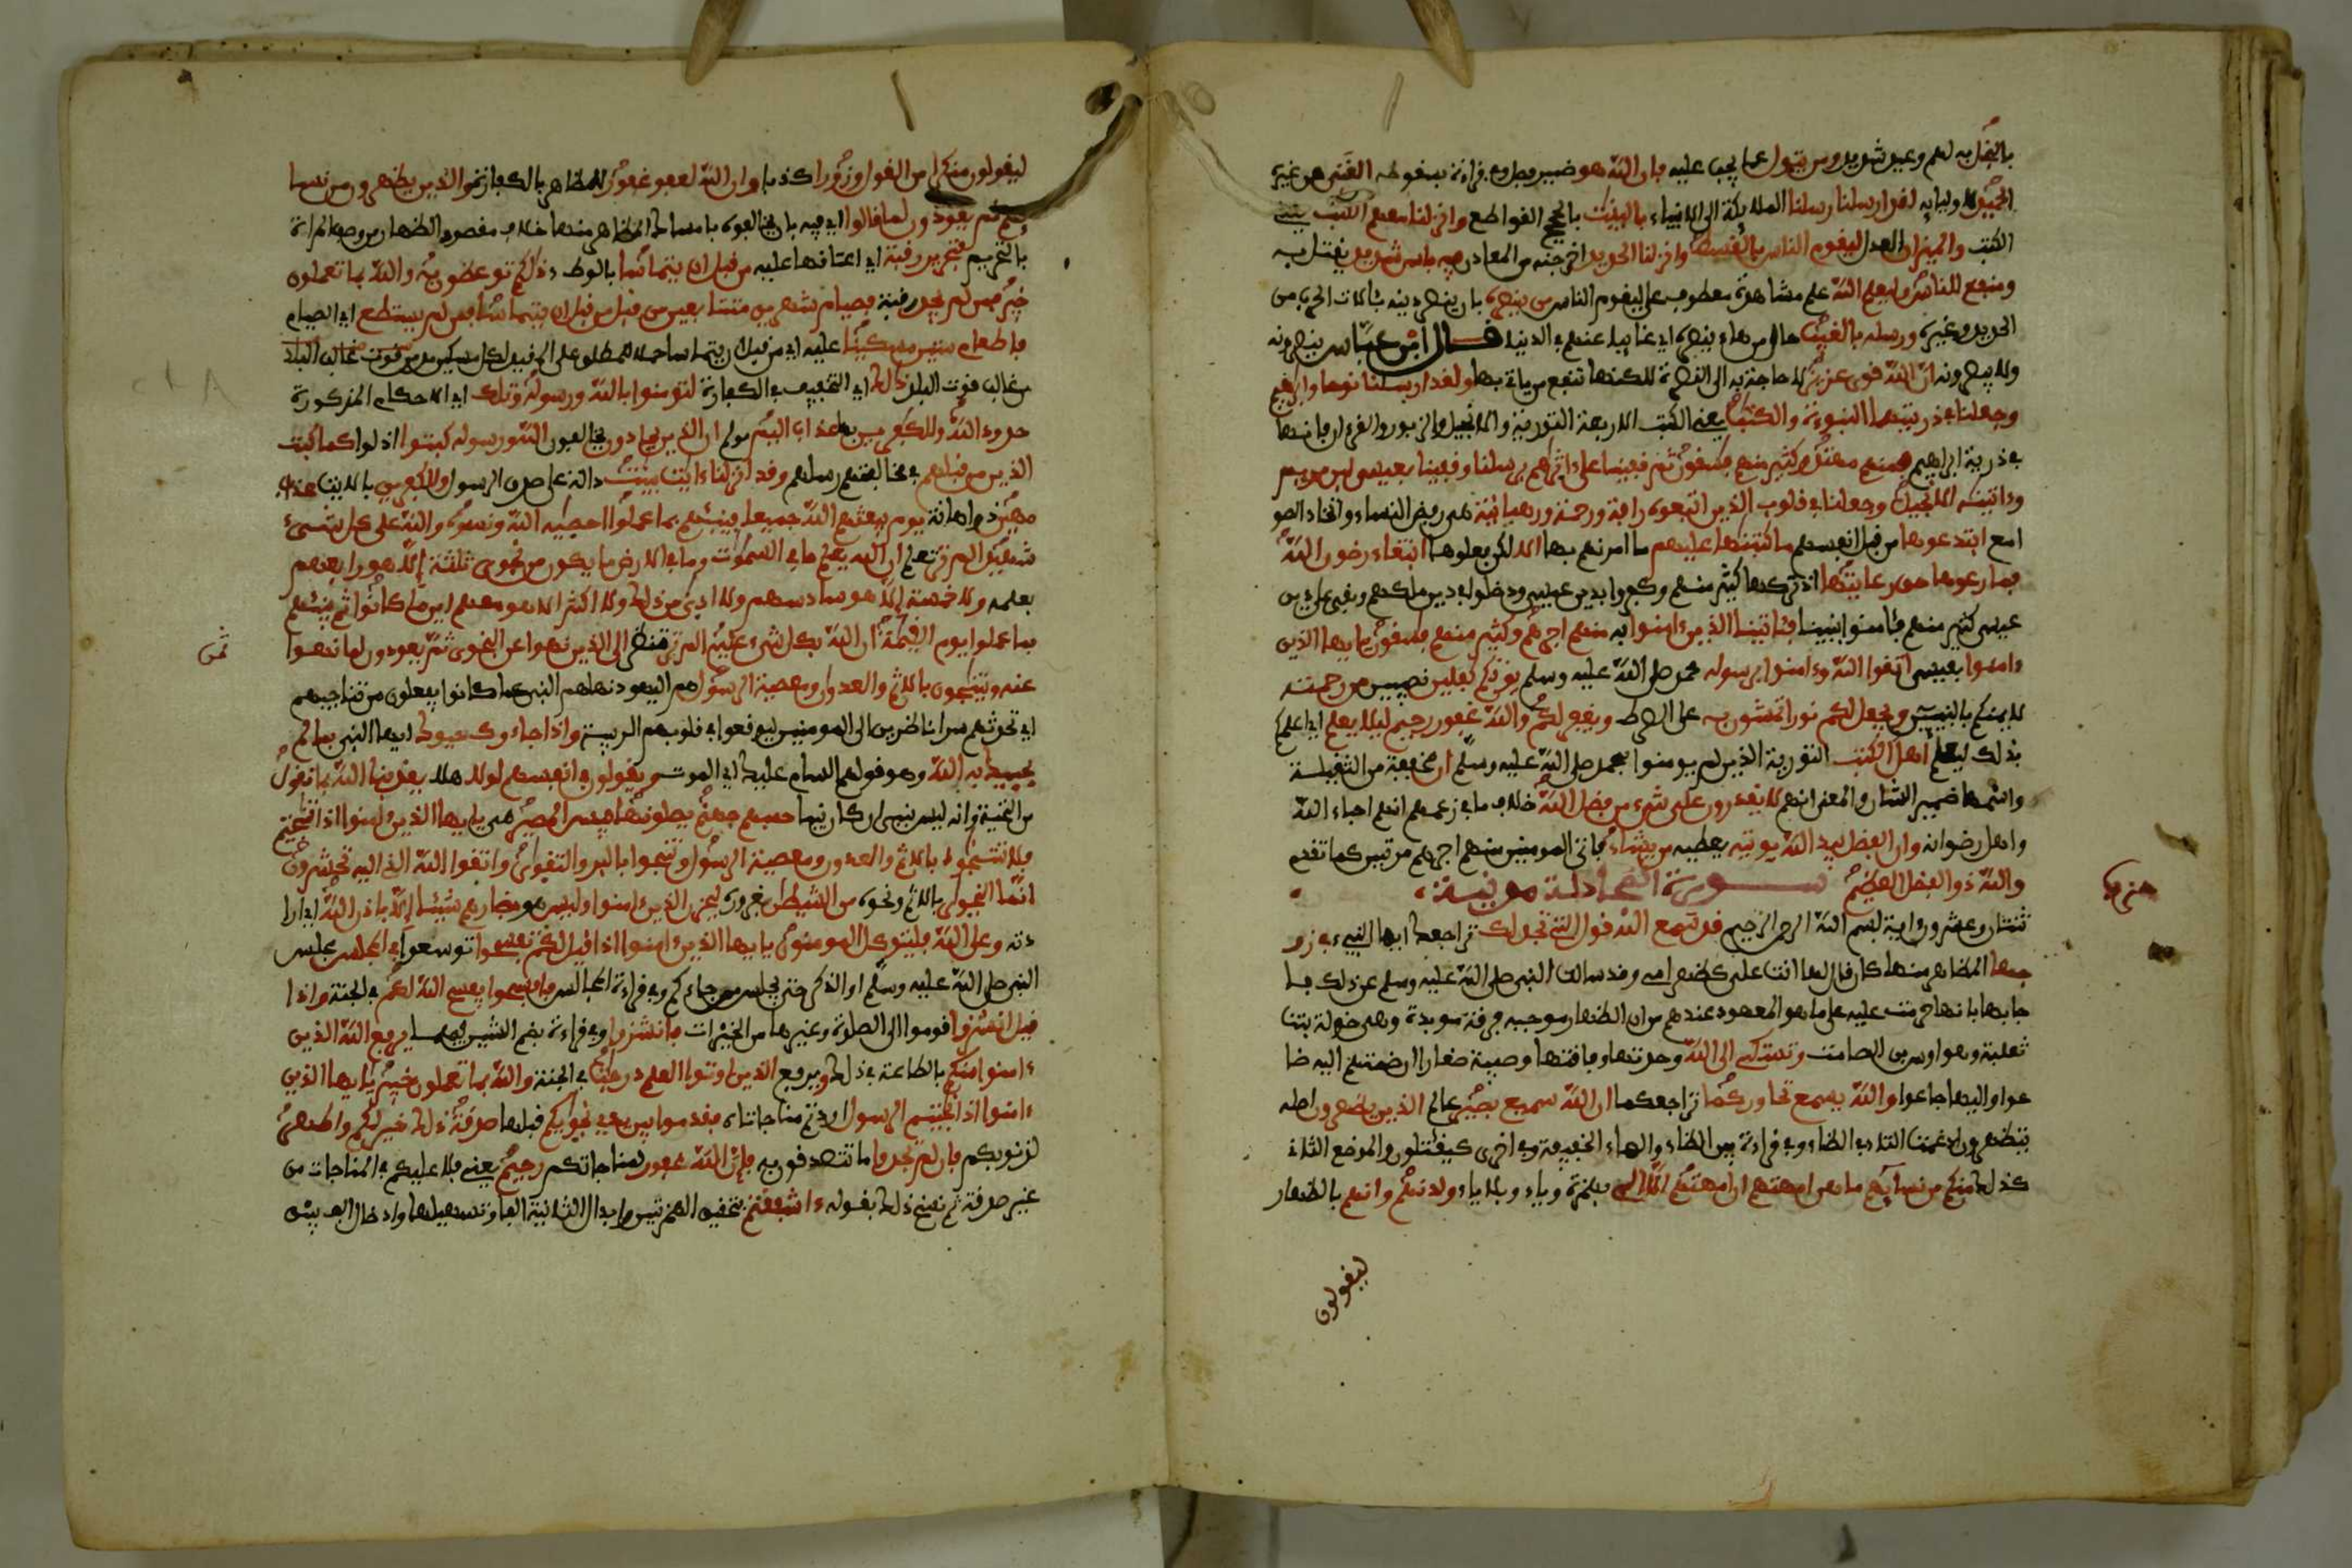 بالبخل به لهم وعيد شديد ومن يتول عما يجب عليه فإن الله هو ضمير فصل وفي قراءة بسقوطه الغني عن غيره
الحميد لأوليائه لقد ارسلنا رسلنا الملائكة إلى الانبياء بالبينت بالحجج القواطع وانزلنا معهم الكتب بمعنى
الكتب والميزان العدل ليقوم الناس بالقسط وانزلنا الحديد اخرجنه من المعادن فيه باس شديد يقتل به
ومنفع للناس وليعلم الله علم مشاهدة معطوف على ليقوم الناس من ينصره بان ينصر دينه بئالات الحرب من
الحديد وغيره ورسله بالغيب حال من هاء ينصره اي غائبا عنهم في الدنيا قال ابن عباس ينصرونه
ولا يبصرونه ان الله قوي عزيز لا حاجة به الى النصرة لكنها تنفع من ياتي بها ولقد ارسلنا نوحا وابرهيم
وجعلنا في ذريتهما النبوءة والكتب يعني الكتب الاربعة التورية والانجيل والزبور والفرقان فإنها
في ذرية ابراهيم فمنهم مهتد وكثير منهم فسقون ثم قفينا على ءاثرهم برسلنا وقفينا بعيسى ابن مريم
وءاتينه الانجيل وجعلنا في قلوب الذين اتبعوه رافة ورحمة ورهبانية هي رفض النساء واتخاذ الصو
امع ابتدعوها من قبل انفسهم ما كتبنها عليهم ما امرنهم بها الا لكن فعلوها ابتغاء رضون الله
فما رعوها حق رعايتها اذ تركها كثير منهم وكفروا بدين عيسى ودخلوا في دين ملكهم وبقي على دين
عيسى كثير منهم فئامنوا بنبينا فئاتينا الذين ءامنوا به منهم اجرهم وكثير منهم فسقون يايها الذين
ءامنوا بعيسى اتقوا الله وءامنوا برسوله محمد صلى الله عليه وسلم يوتكم كفلين نصيبين من رحمته
لايمنكم بالنبيين ويجعل لكم نورا تمشون به على الصراط ويغفر لكم والله غفور رحيم ليلا يعلم اي اعلمكم
بذلك ليعلم اهل الكتب التورية الذين لم يومنوا بمحمد صلى الله عليه وسلم ان مخففة من الثقيلة
واسمها ضمير الشان والمعنى انهم لا يقدرون على شيء من فضل الله خلاف ما في زعمهم انهم احباء الله
واهل رضوانه وان الفضل بيد الله يوتيه يعطيه من يشاء فئاتى المومنين منهم اجرهم مرتين كما تقدم
والله ذو الفضل العظيم سورة المجادلة مدنية
ثنتان وعشرون اية بسم الله الرحمن الرحيم قد سمع الله قول التي تجدلك تراجعك ايها النبيء في زو
جها المظاهر منها كان قال لها انت علي كظهر امي وقد سالت النبي صلى الله عليه وسلم عن ذلك فا
جابها بانها حرمت عليه على ما هو المعهود عندهم من ان الظهار موجبه فرقة موبدة وهي خولة بنت
ثعلبة وهو اوس بن الصامت وتشتكي الى الله وحدتها وفاقتها وصبية صغارا ان ضمتهم اليه ضا
عوا او اليها جاعوا والله يسمع تحاوركما تراجعكما ان الله سميع بصير عالم الذين يظهرون اصله
يتظهرون ادغمت التاء في الظاء وفي قراءة بين الظاء والهاء الخفيفة وفي اخرى كيقاتلون والموضع الثاني
كذلك منكم من نسائهم ما هن امهتهم ان امهتهم الا الئي بهمزة وياء وبلا ياء ولدنهم وانهم بالظهار
ليقولون
حزب
ليقولون منكرا من القول وزورا كذبا وان الله لعفو غفور للمظاهر بالكفارة والذين يظهرون من نسا
ئهم ثم يعودون لما قالوا اي فيه بان يخالفوه بامساك المظاهر منها خلاف مقصود الظهار من وصف المراة
بالتحريم فتحرير رقبة اي اعتاقها عليه من قبل ان يتماسا بالوطء ذلكم توعظون به والله بما تعملون
خبير فمن لم يجد رقبة فصيام شهرين متتابعين من قبل ان يتماسا فمن لم يستطع اي الصيام
فاطعام ستين مسكينا عليه اي من قبل ان يتماسا حملا للمطلق على المقيد لكل مسكين مد من قوت غالب البلد
من غالب قوت البلد ذلك اي التخفيف في الكفارة لتومنوا بالله ورسوله وتلك اي الاحكام المذكورة
حدود الله وللكفرين بها عذاب اليم مولم ان الذين يحادون يخالفون الله ورسوله كبتوا اذلوا كما كبت
الذين من قبلهم في مخالفتهم رسلهم وقد انزلنا ءايت بينت دالة على صدق الرسول وللكفرين بالايت عذاب
مهين ذو اهانة يوم يبعثهم الله جميعا فينبئهم بما عملوا احصيه الله ونسوه والله على كل شيء
شهيد الم تر تعلم ان الله يعلم ما في السموت وما في الارض ما يكون من نجوى ثلثة الا هو رابعهم
بعلمه ولا خمسة الا هو سادسهم ولا ادنى من ذلك ولا اكثر الا هو معهم اين ما كانوا ثم ينبئهم
بما عملوا يوم القيمة ان الله بكل شيء عليم الم تر تنظر الى الذين نهوا عن النجوى ثم يعودون لما نهوا
عنه ويتنجون بالاثم والعدوان ومعصية الرسول هم اليهود نهاهم النبي عما كانوا يفعلون من تناجيهم
اي تحدثهم سرا ناظرين الى المومنين ليوقعوا في قلوبهم الريبة واذا جاءوك حيوك ايها النبي بما لم
يحيك به الله وهو قولهم السام عليك اي الموت ويقولون في انفسهم لولا هلا يعذبنا الله بما نقول
من التحية وانه ليس بنبي ان كان نبيا حسبهم جهنم يصلونها فبيس المصير هي يايها الذين ءامنوا اذا تنجيتم
فلا تتنجوا بالاثم والعدون ومعصية الرسول وتنجوا بالبر والتقوى واتقوا الله الذي اليه تحشرون
انما النجوى بالاثم ونحوه من الشيطن بغروره ليحزن الذين ءامنوا وليس هو بضارهم شيئا الا باذن الله اي ارا
دته وعلى الله فليتوكل المومنون يايها الذين ءامنوا اذا قيل لكم تفسحوا توسعوا في المجلس مجلس
النبي صلى الله عليه وسلم او الذكر حتى يجلس من جاءكم وفي قراءة المجالس فافسحوا يفسح الله لكم في الجنة واذا
قيل انشزوا قوموا الى الصلوة وغيرها من الخيرات فانشزوا وفي قراءة بضم الشين فيهما يرفع الله الذين
ءامنوا منكم بالطاعة في ذلك ويرفع الذين اوتوا العلم درجت في الجنة والله بما تعملون خبير يايها الذين
ءامنوا اذا نجيتم الرسول اردتم مناجاته فقدموا بين يدي نجويكم قبلها صدقة ذلك خير لكم واطهر
لذنوبكم فان لم تجدوا ما تتصدقون به فإن الله غفور لمناجاتكم رحيم يعني فلا عليكم في المناجات من
غير صدقة ثم نسخ ذلك بقوله ءاشفقتم بتحقيق الهمزتين وابدال الثانية الفا وتسهيلها وادخال الف بين
ثمن